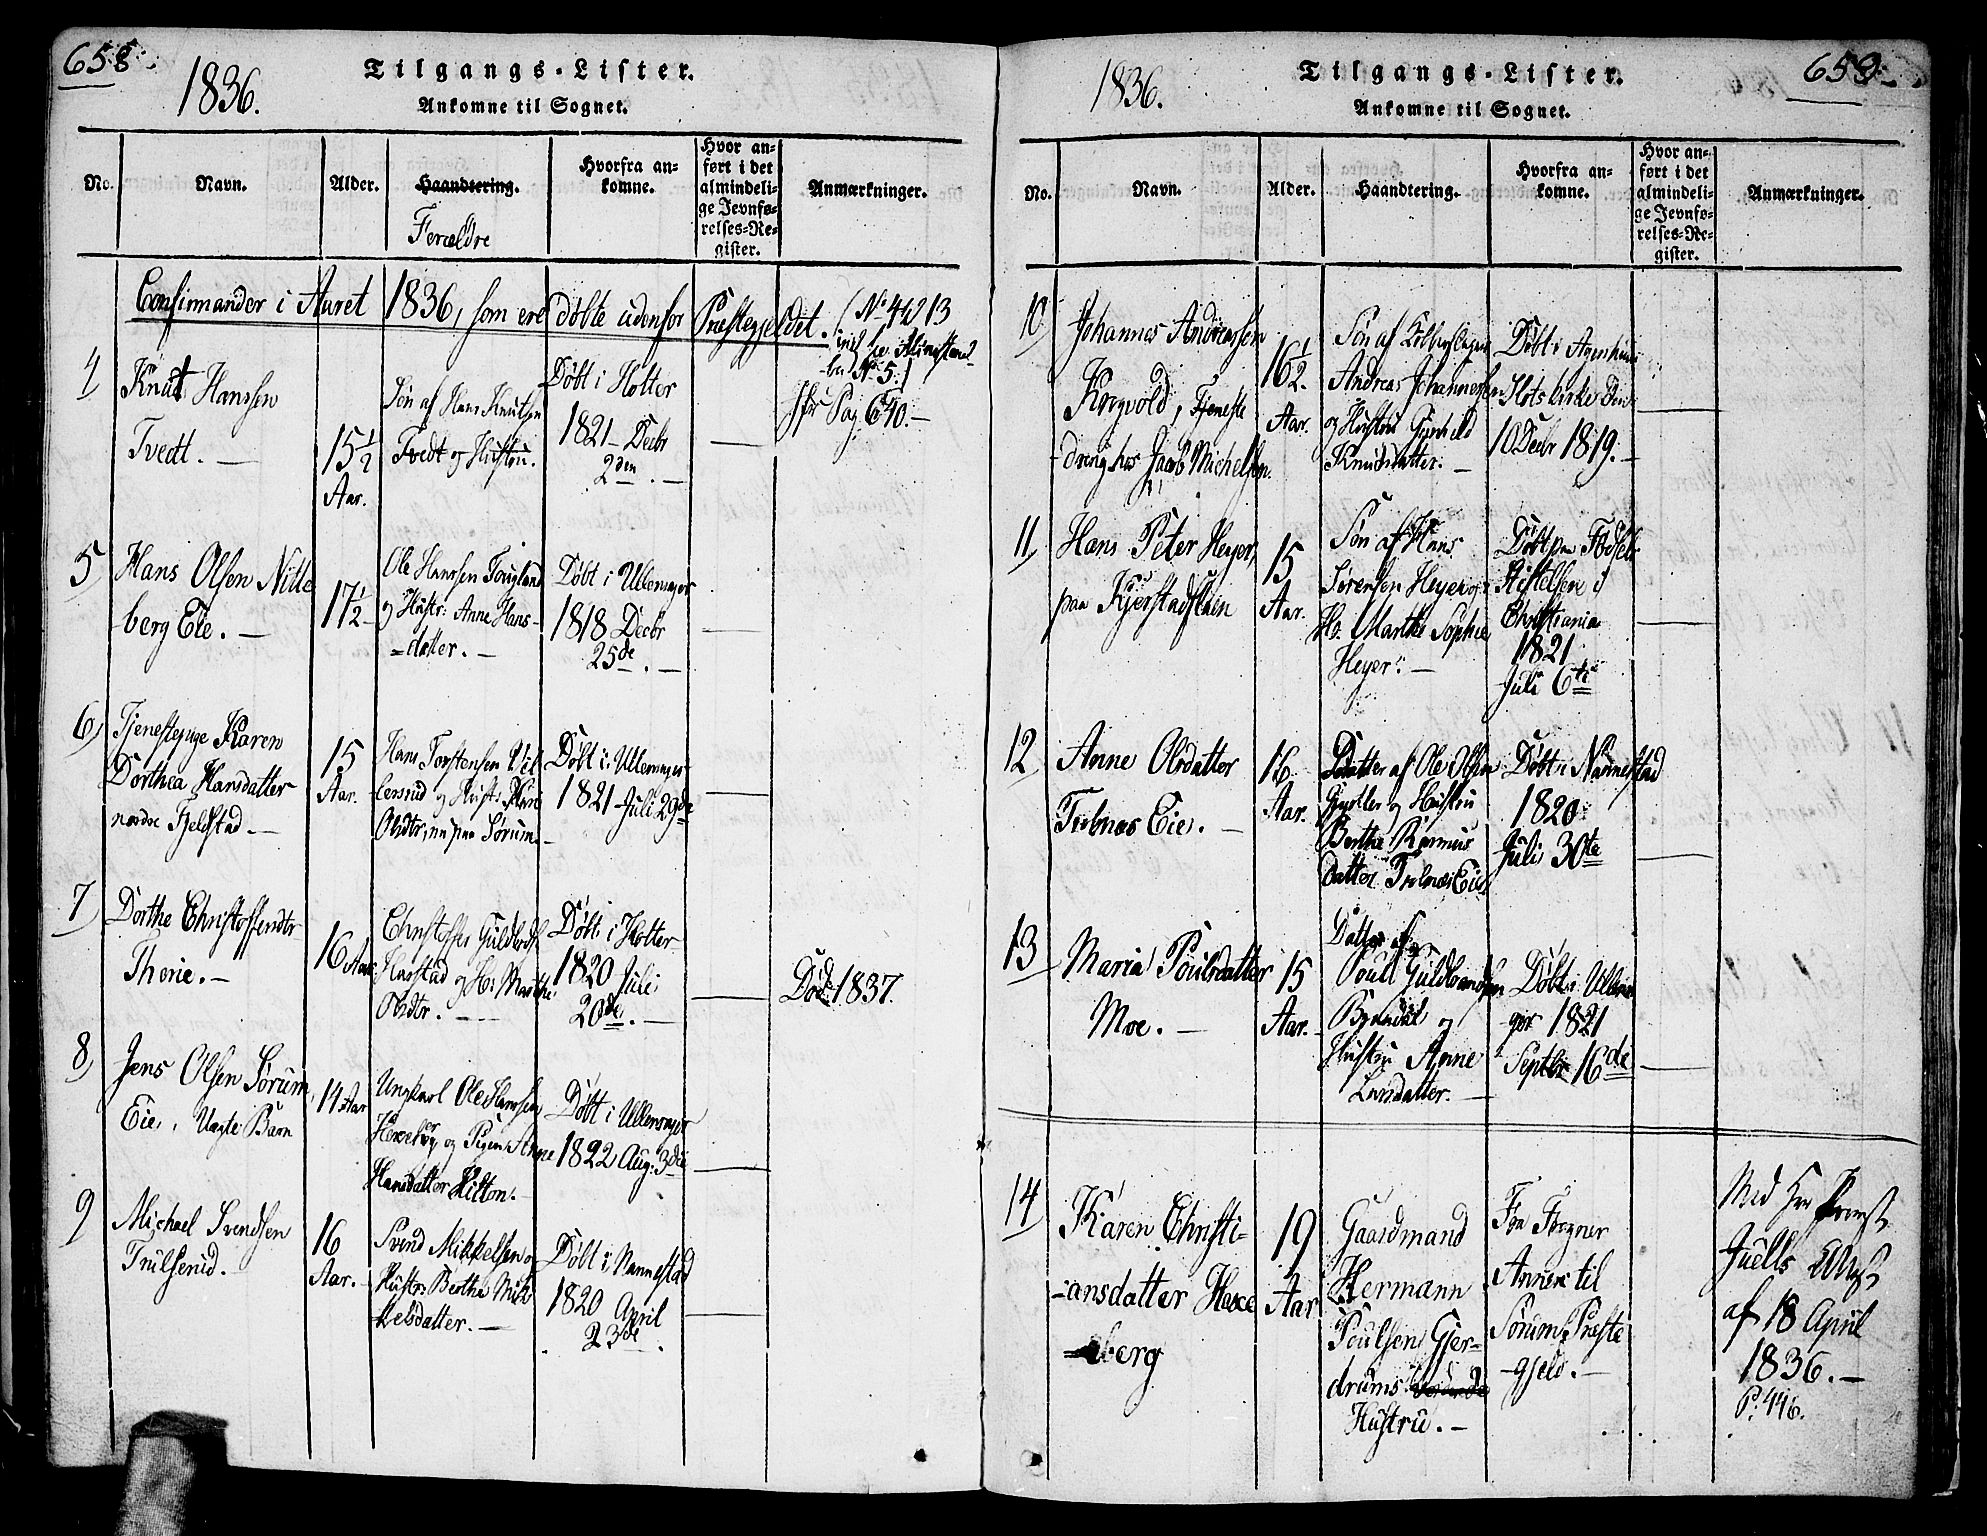 658.
1836.
Tilgangs-Lister.
Ankomne til Sognet.
No.
Navn.
Alder.
Haandtering.
Forældre
Hvorfra an-
komne.
Hvor an-
ført i det
almindeli-
ge Jevnfø-
relses-Re-
gister.
Anmærkninger.
Confirmander i Aaret 1836, som ere døbte udenfor Præstegjeldet. (No 4 til 13
No 5.)
4
Knut Hanssen
Tvedt. —
15 1/2
Aar.
Søn af Hans Knutsen
Tvedt og Hustru.
Døbt i Holter
1821 Decbr
2den. —
Pag. 640. —
5
Hans Olsen Nitte
berg Eie. —
17 1/2
Ole Hanssen Fougland
og Hustr: Anne Hans-
datter. —
Døbt i Ullensager
1818 Decbr
25de. —
6
Tjenestepige Karen
Dorthea Hansdatter
nordre Fjeldstad —
15
Aar.
Hans Torstensen Vil
lersrud og Hust: Kari
Olsdtr, nu paa Sørum. —
Døbt i Ullensager
1821 Juli 29de
7
Dorthe Christoffersdtr
Thorie. —
16 Aar.
Christoffer Guldbrds.
Harstad og H: Marthe
Olsdtr. —
Døbt i Holter
1820 Juli
20de. —
Død 1837.
8
Jens Olsen Sørum
Eie, Uægte Barn
14 Aar
Ungkarl Ole Hanssen
Herseberg og Pigen Anne
Hansdatter Hilton. —
Døbt i Ullensager
1822 Aug: 3die
9
Michael Svendsen
Trulserud.
16
Aar. —
Svend Mikkelsen og
Hustr: Berthe Mik
kelsdatter. —
Døbt i Nannestad
1820 April
23de.
659.
1836.
Tilgangs-Lister.
Ankomne til Sognet.
No.
Navn.
Alder.
Haandtering.
Hvorfra an-
komne.
Hvor an-
ført i det
almindeli-
ge Jevnfø-
relses-Re-
gister.
Anmærkninger.
10
Johannes Andreassen
Kogvold, Tjeneste
dreng hos Jacob Michelsen.
16 1/2
Aar.
Søn af
Andreas Johannessen
og Hustru Gunhild
Knudsdatter. —
Døbt i Agershuus
Slots kirke den
10 Decbr 1819. —
11
Hans Peter Heyer,
paa Kjerstadslien
15
Aar.
Søn af Hans
Sørensen Heyer og
H: Marthe Sophie
Heyer. —
Døbt paa Fødsels
Stiftelsen i
Christiania
1821
Juli 6te
12
Anne Olsdatter
Tulnæs Eie. —
16
Aar.
Datter af Ole Olsen
og Hustru
Berthe Rasmus
datter Tulnæs Eie
Døbt i Nannestad
1820
Juli 30te
13
Maria Poulsdatter
Moe. —
15
Aar.
Datter af
Poul Guldbrandsen
og
Hustru Anne
Larsdatter. —
Døbt i Ullensa
ger 1821
Septbr 16de
14
Karen Christi-
-ansdatter Hexe
berg
19
Aar
Gaardmand
Hermann
Poulsen Gjer-
drums
Hustru. —
Fra Frogner
Annex til
Sørums Præste
-gjeld. —
Med Hr Provst
Juells Attest
af 18 April
1836. —
P. 446.